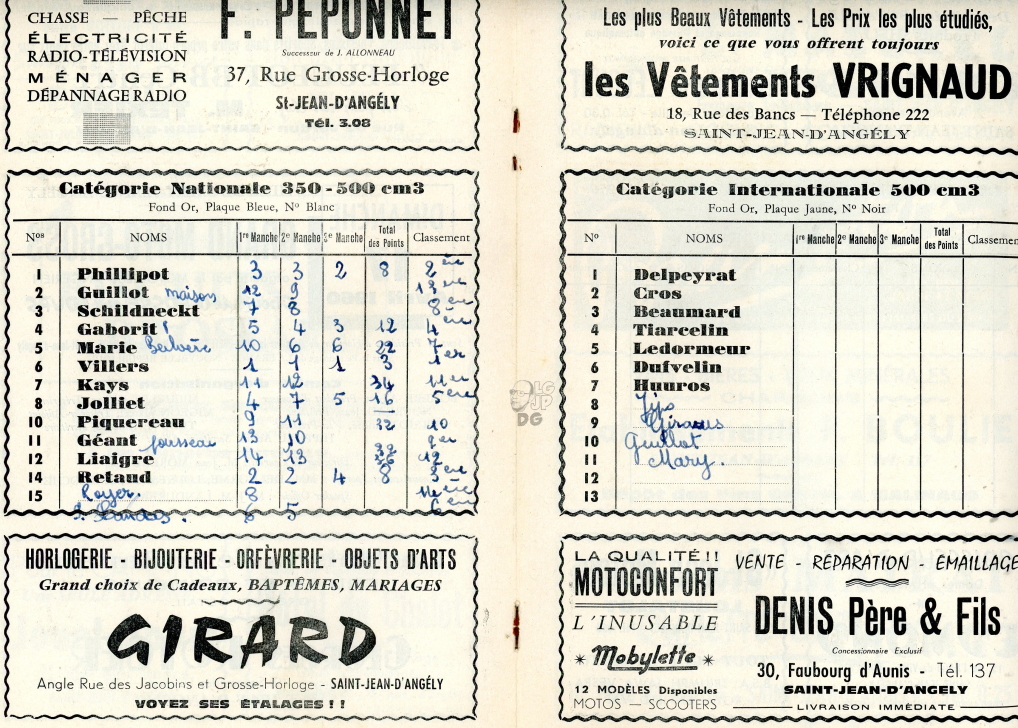 CHASSE — PÊCHE
ÉLECTRICITÉ
RADIO-TÉLÉVISION
MÉNAGER
DÉPANNAGE RADIO
F. PEPONNET
Successeur de J. ALLONNEAU
37, Rue Grosse-Horloge
St-JEAN-D'ANGÉLY
Tél. 3.08
Catégorie Nationale 350-500 cm3
Fond Or, Plaque Bleue, No Blanc
Nos NOMS 1re Manche 2e Manche 3e Manche Total des Points Classement
1 Phillipot 3 3 2 8 2
2 Guillot maison 12 9
3 Schildneckt 7 8 8
4 Gaborit 5 4 3 12 4
5 Marie 10 6 6 22 7
6 Villers 1 1 1 3 1er
7 Kays 11 12 34 11
8 Jolliet 4 7 5 16 5
10 Piquereau 9 11 32 10
11 Géant Jousseau 13 10
12 Liaigre 14 13 12
14 Retaud 2 2 4 8 3
15 Royer 8
6 5
HORLOGERIE - BIJOUTERIE - ORFÈVRERIE - OBJETS D'ARTS
Grand choix de Cadeaux, BAPTÊMES, MARIAGES
GIRARD
Angle Rue des Jacobins et Grosse-Horloge - SAINT-JEAN-D'ANGÉLY
VOYEZ SES ÉTALAGES !!
Les plus Beaux Vêtements - Les Prix les plus étudiés,
voici ce que vous offrent toujours
les Vêtements VRIGNAUD
18, Rue des Bancs — Téléphone 222
SAINT-JEAN-D'ANGÉLY
Catégorie Internationale 500 cm3
Fond Or, Plaque Jaune, No Noir
No NOMS 1re Manche 2e Manche 3e Manche Total des Points Classemen
1 Delpeyrat
2 Cros
3 Beaumard
4 Tiarcelin
5 Ledormeur
6 Dufvelin
7 Huuros
8
9 Giraus
10 Guillot
11 Mary.
12
13
LA QUALITÉ !!
MOTOCONFORT
L'INUSABLE
* Mobylette *
12 MODÈLES Disponibles
MOTOS — SCOOTERS
VENTE - RÉPARATION - ÉMAILLAGE
DENIS Père & Fils
Concessionnaire Exclusif
30, Faubourg d'Aunis - Tél. 137
SAINT-JEAN-D'ANGELY
LIVRAISON IMMÉDIATE
DG